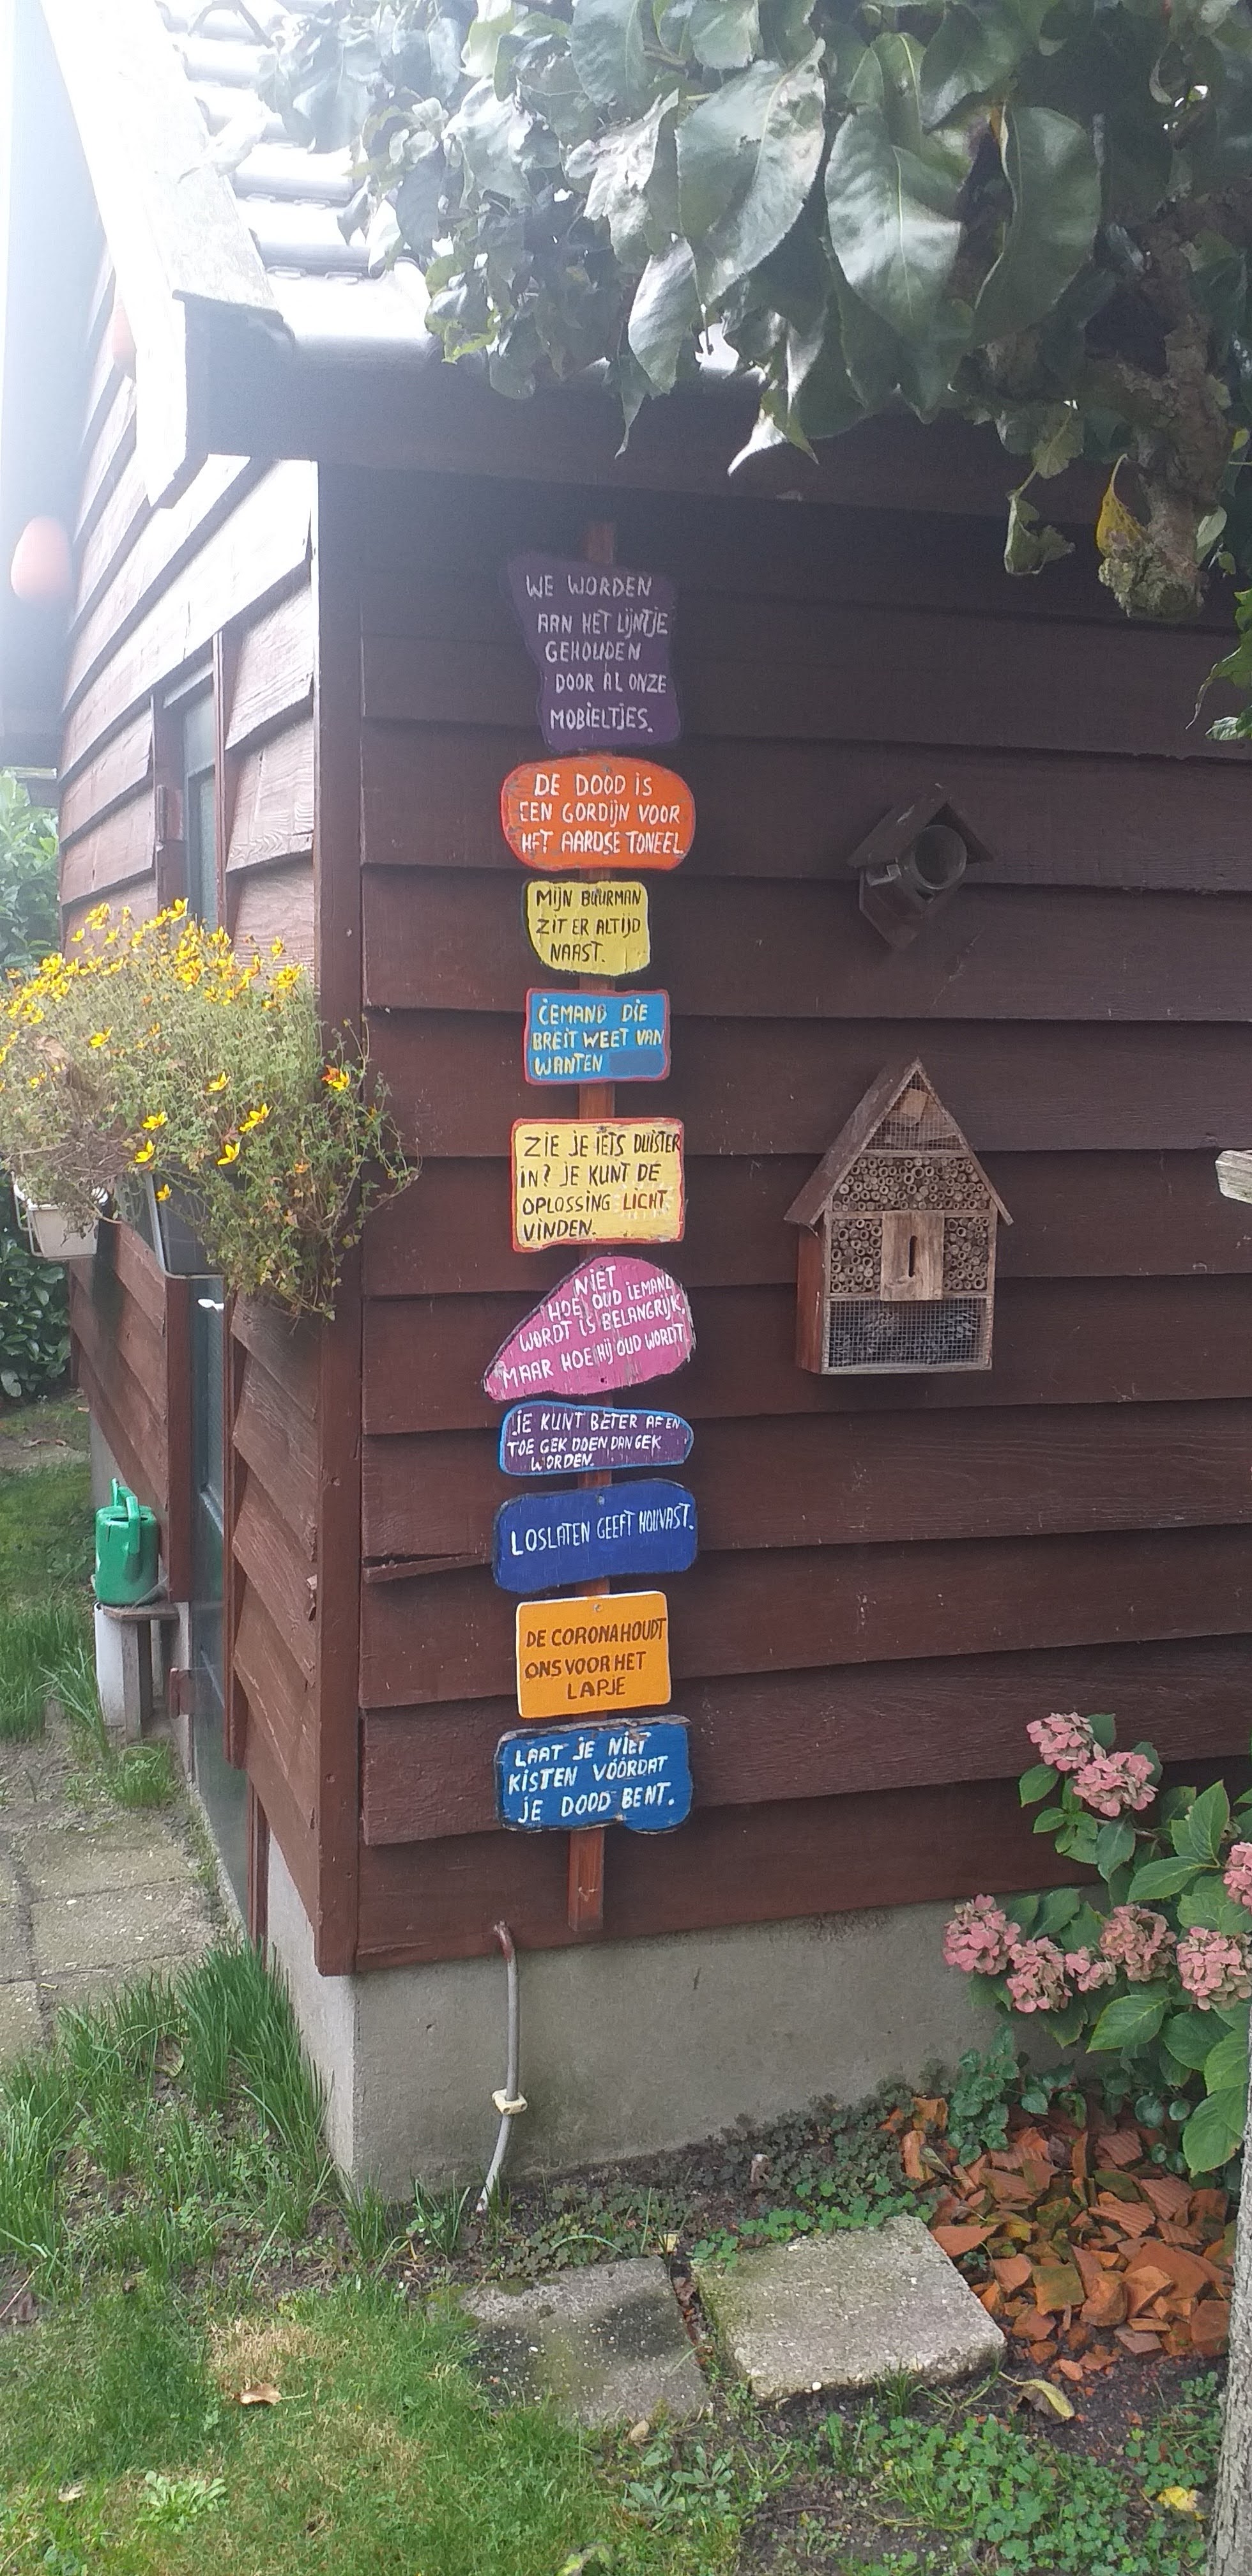 WE WORDEN
AAN HET LIJNTJE
GEHOUDEN
DOOR AL ONZE
MOBIELTJES.
DE DOOD IS
EEN GORDIJN VOOR
HET AARDSE TONEEL
MIJN BUURMAN
ZIT ER ALTIJD
NAAST.
IEMAND DIE
BREIT WEET VAN
WANTEN
ZIE JE IETS DUISTER
IN? JE KUNT DE
OPLOSSING LICHT
VINDEN.
NIET
HOE OUD IEMAND
WORDT IS BELANGRIJK,
MAAR HOE HIJ OUD WORDT.
JE KUNT BETER AF EN
TOE GEK DOEN DAN GEK
WORDEN.
LOSLATEN GEEFT HOUVAST.
DE CORONA HOUDT
ONS VOOR HET
LAPJE
LAAT JE NIET
KISTEN VÓÓRDAT
JE DOOD BENT.